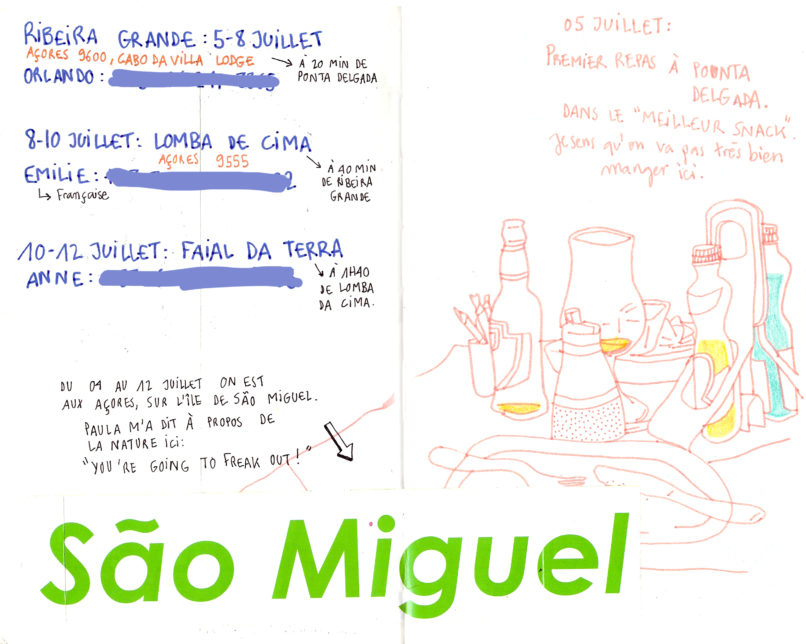 RIBEIRA GRANDE : 5-8 JUILLET
AÇORES 9600, CABO DA VILLA LODGE
→ À 20 MIN DE
PONTA DELGADA
ORLANDO :
8-10 JUILLET: LOMBA DE CIMA
AÇORES 9555
EMILIE :
↳ Française
→ À 40 MIN
DE RIBEIRA
GRANDE
10-12 JUILLET: FAIAL DA TERRA
ANNE :
→ À 1H40
DE LOMBA
DA CIMA.
DU 04 AU 12 JUILLET ON EST
AUX AÇORES, SUR L'ÎLE DE SÃO MIGUEL.
PAULA M'A DIT À PROPOS DE
LA NATURE ICI:
"YOU'RE GOING TO FREAK OUT!"
São Miguel
05 JUILLET:
PREMIER REPAS À PONTA
DELGADA.
DANS LE "MEILLEUR SNACK".
Je sens qu'on va pas très bien
manger ici.